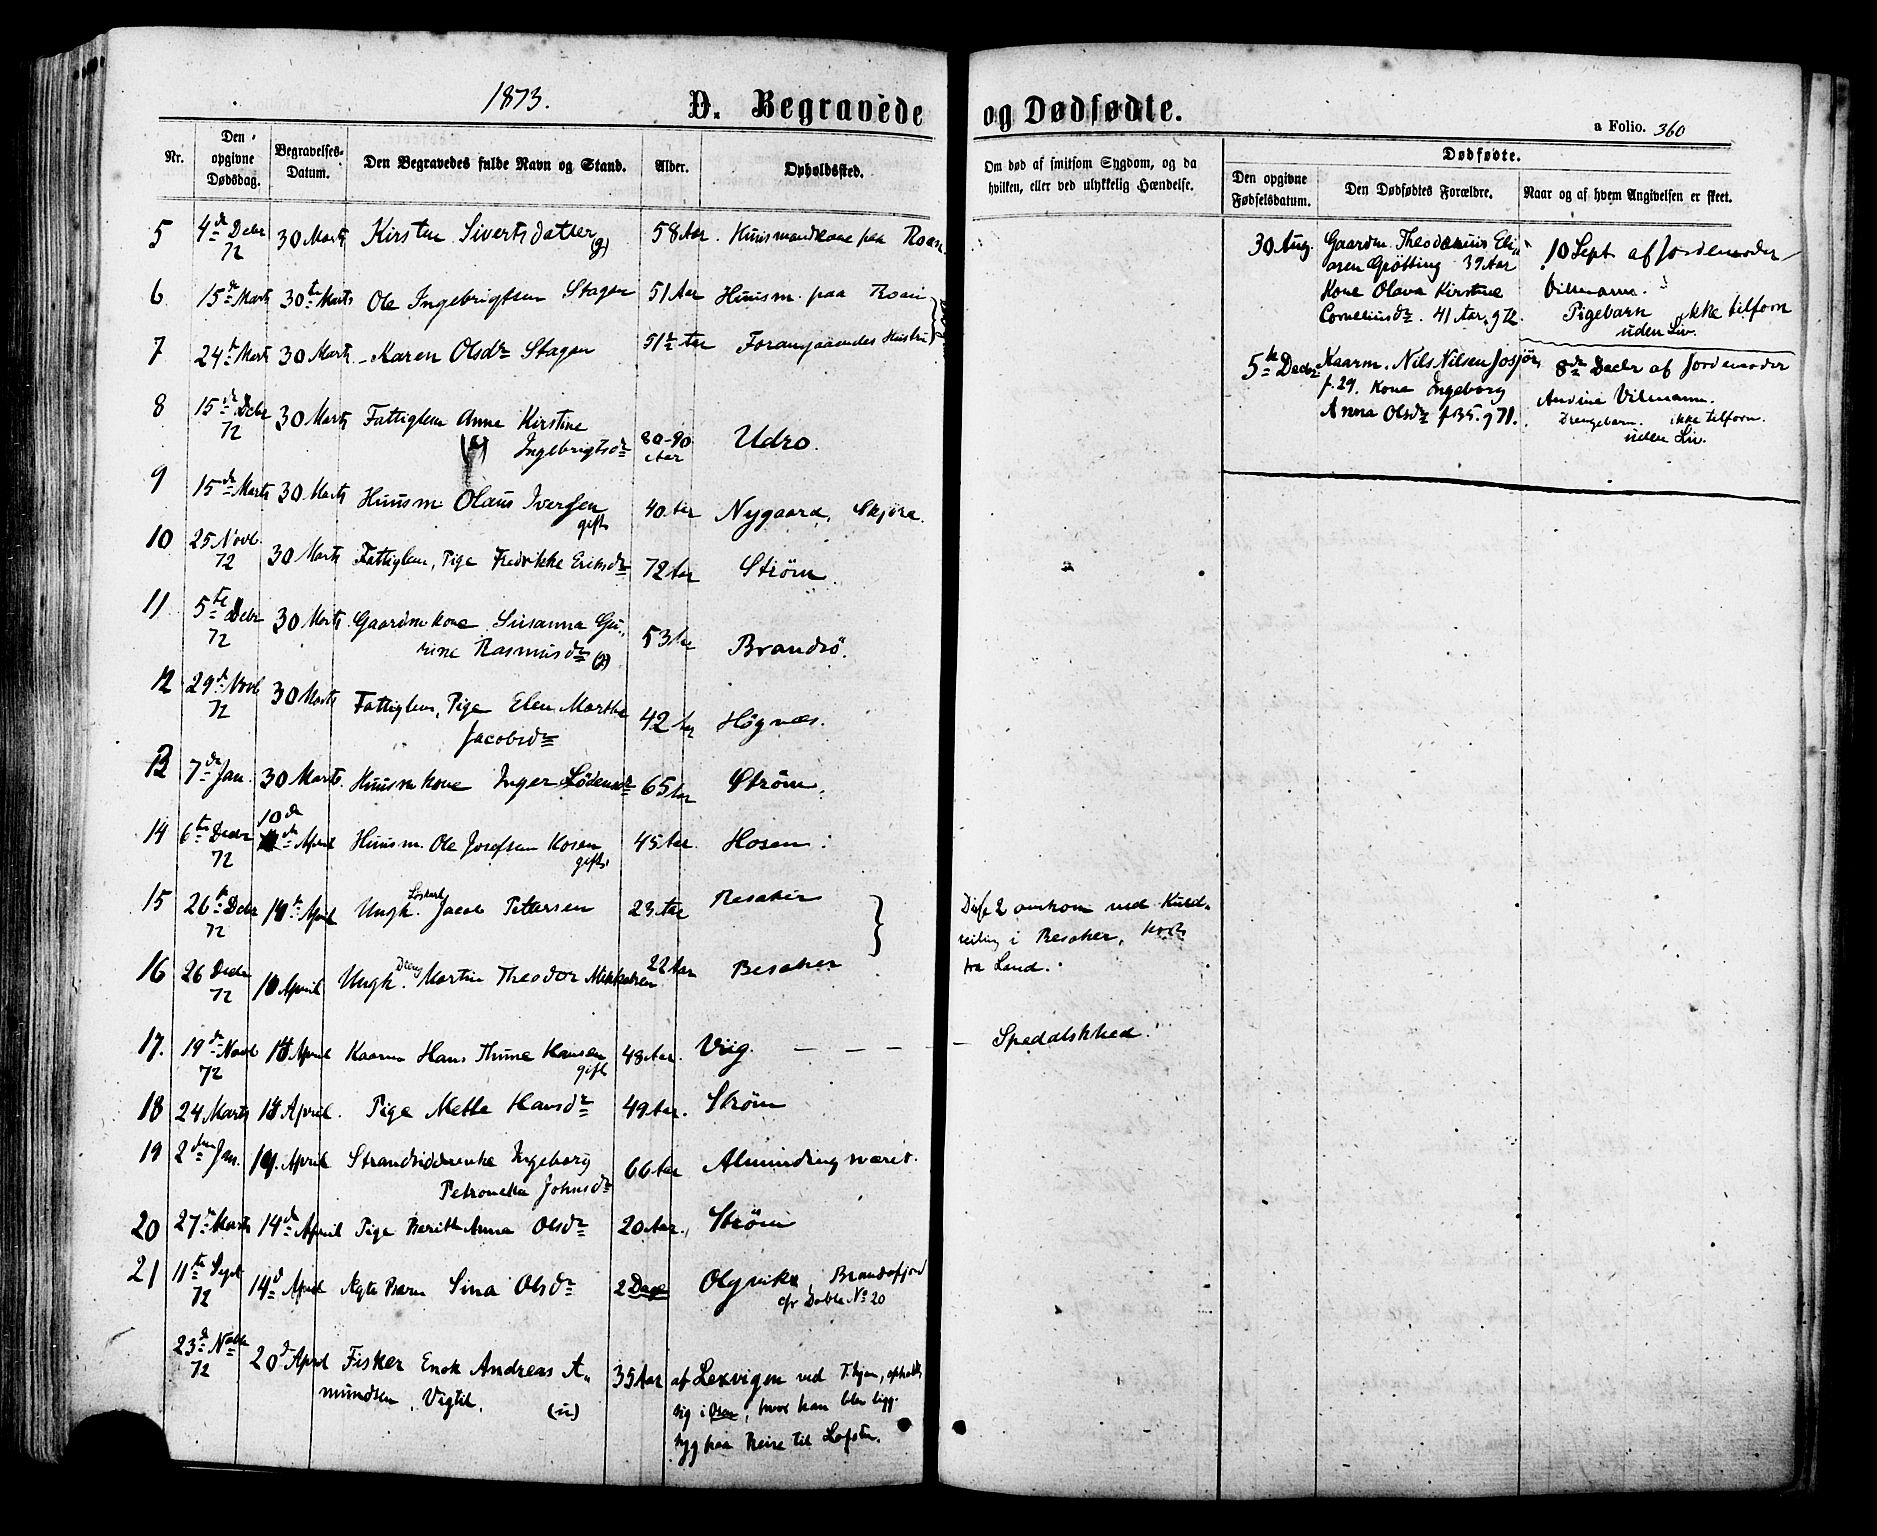 1873.
D. Begravede og Dødfødte.
a Folio. 360
Nr.
Den opgivne Dødsdag.
Begravelses-Datum.
Den Begravedes fulde Navn og Stand.
Alder.
Opholdssted.
Om død af smitsom Sygdom, og da hvilken, eller ved ulykkelig Hændelse.
Dødfødte.
Den opgivne Fødselsdatum.
Den Dødfødtes Forældre.
Naar og af hvem Angivelsen er skeet.
5 4de Debr 72 30 Marts Kirsten Sivertsdatter (g) 58 Aar. Huusmandkone paa Roan
6 15de Marts 30te Marts Ole Ingebrigtsen Stagen 51 Aar Huusm. paa Roan
7 24de Marts 30 Marts Karen Olsdr Stagen 51 Aar Forangaaendes Hustru
8 15de Debr 72 30 Marts Fattiglem Anne Kirstine
Ingebrigtsdr 80-90 Aar Udro.
9 15de Marts 30 Marts Huusm Olaus Iversen gift 40 Aar Nygaard, Skjøra
10 25 Novb. 72 30 Marts Fattiglem, Pige Fredrikke Eriksdr 72 Aar Strøm
11 5te Debr 72 30 Marts Gaardmkone Susanna Gu-
rine Rasmusdr (g) 53 Aar Brandsø.
12 29de Novb 72 30 Marts Fattiglem, Pige Elen Marthe
Jacobsdr 42 Aar Høgnæs.
13 7de Jan. 30 Marts. Huusmkone Inger Sødensdr 65 Aar Strøm.
14 6te Decbr 72 10de April Huusm. Ole Josefsen Hosen gift 45 Aar Hosen
15 26te Debr 72 April Ungk. Løskarl Jacob Pettersen 23 Aar Besaker
16 26 Decbr 72 April Ungk. Dreng Martin Theodor Mikkelsen 22 Aar Besaker
Disse 2 omkom ved Kuld-
seiling i Besaker, kort
fra Land.
17. 19de Novb 72 April Kaarm Hans Thune Hansen gift 48 Aar. Viig. — — — — Spedalskhed.
18 24 Marts April. Pige Mette Hansdr 49 Aar. Strøm
19 2den Jan. April Strandsidderenke Ingeborg
Petronelle Johnsdr 66 Aar Almindingsværet.
20 27de Marts 14de April Pige Berith Anna Olsdr 20 Aar. Strøm
21 11te Sept 72 14de April Ægte Barn Sina Olsdr 2 Dage Olsvika, Brandsfjord
cfr Døbte No 20
23de Novbr 72 20de April Fisker Enok Andreas A-
mundsen, Vigtil. (u) 35 Aar af Lexvigen ved T.hjem, opholdt
sig i Osen, hvor han blev ligg.
syg paa Reise til Lofoten.
30 Aug. Gaardm. Theodorius Eli-
asen Grøtting 39 Aar
Kone Olava Kirstine
Corneliusdr. 41 Aar, g 72.
10 Sept af Jordemoder
Vilmann.
Pigebarn ikke tilforn
uden Liv.
5te Decbr Kaarm. Nils Nilsen Josjør
f. 29. Kone Ingeborg
Anna Olsdr f 35. g 71.
8de Decbr af Jordemoder
Andrine Vilmann.
Drengebarn. ikke tilforn.
uden Liv.